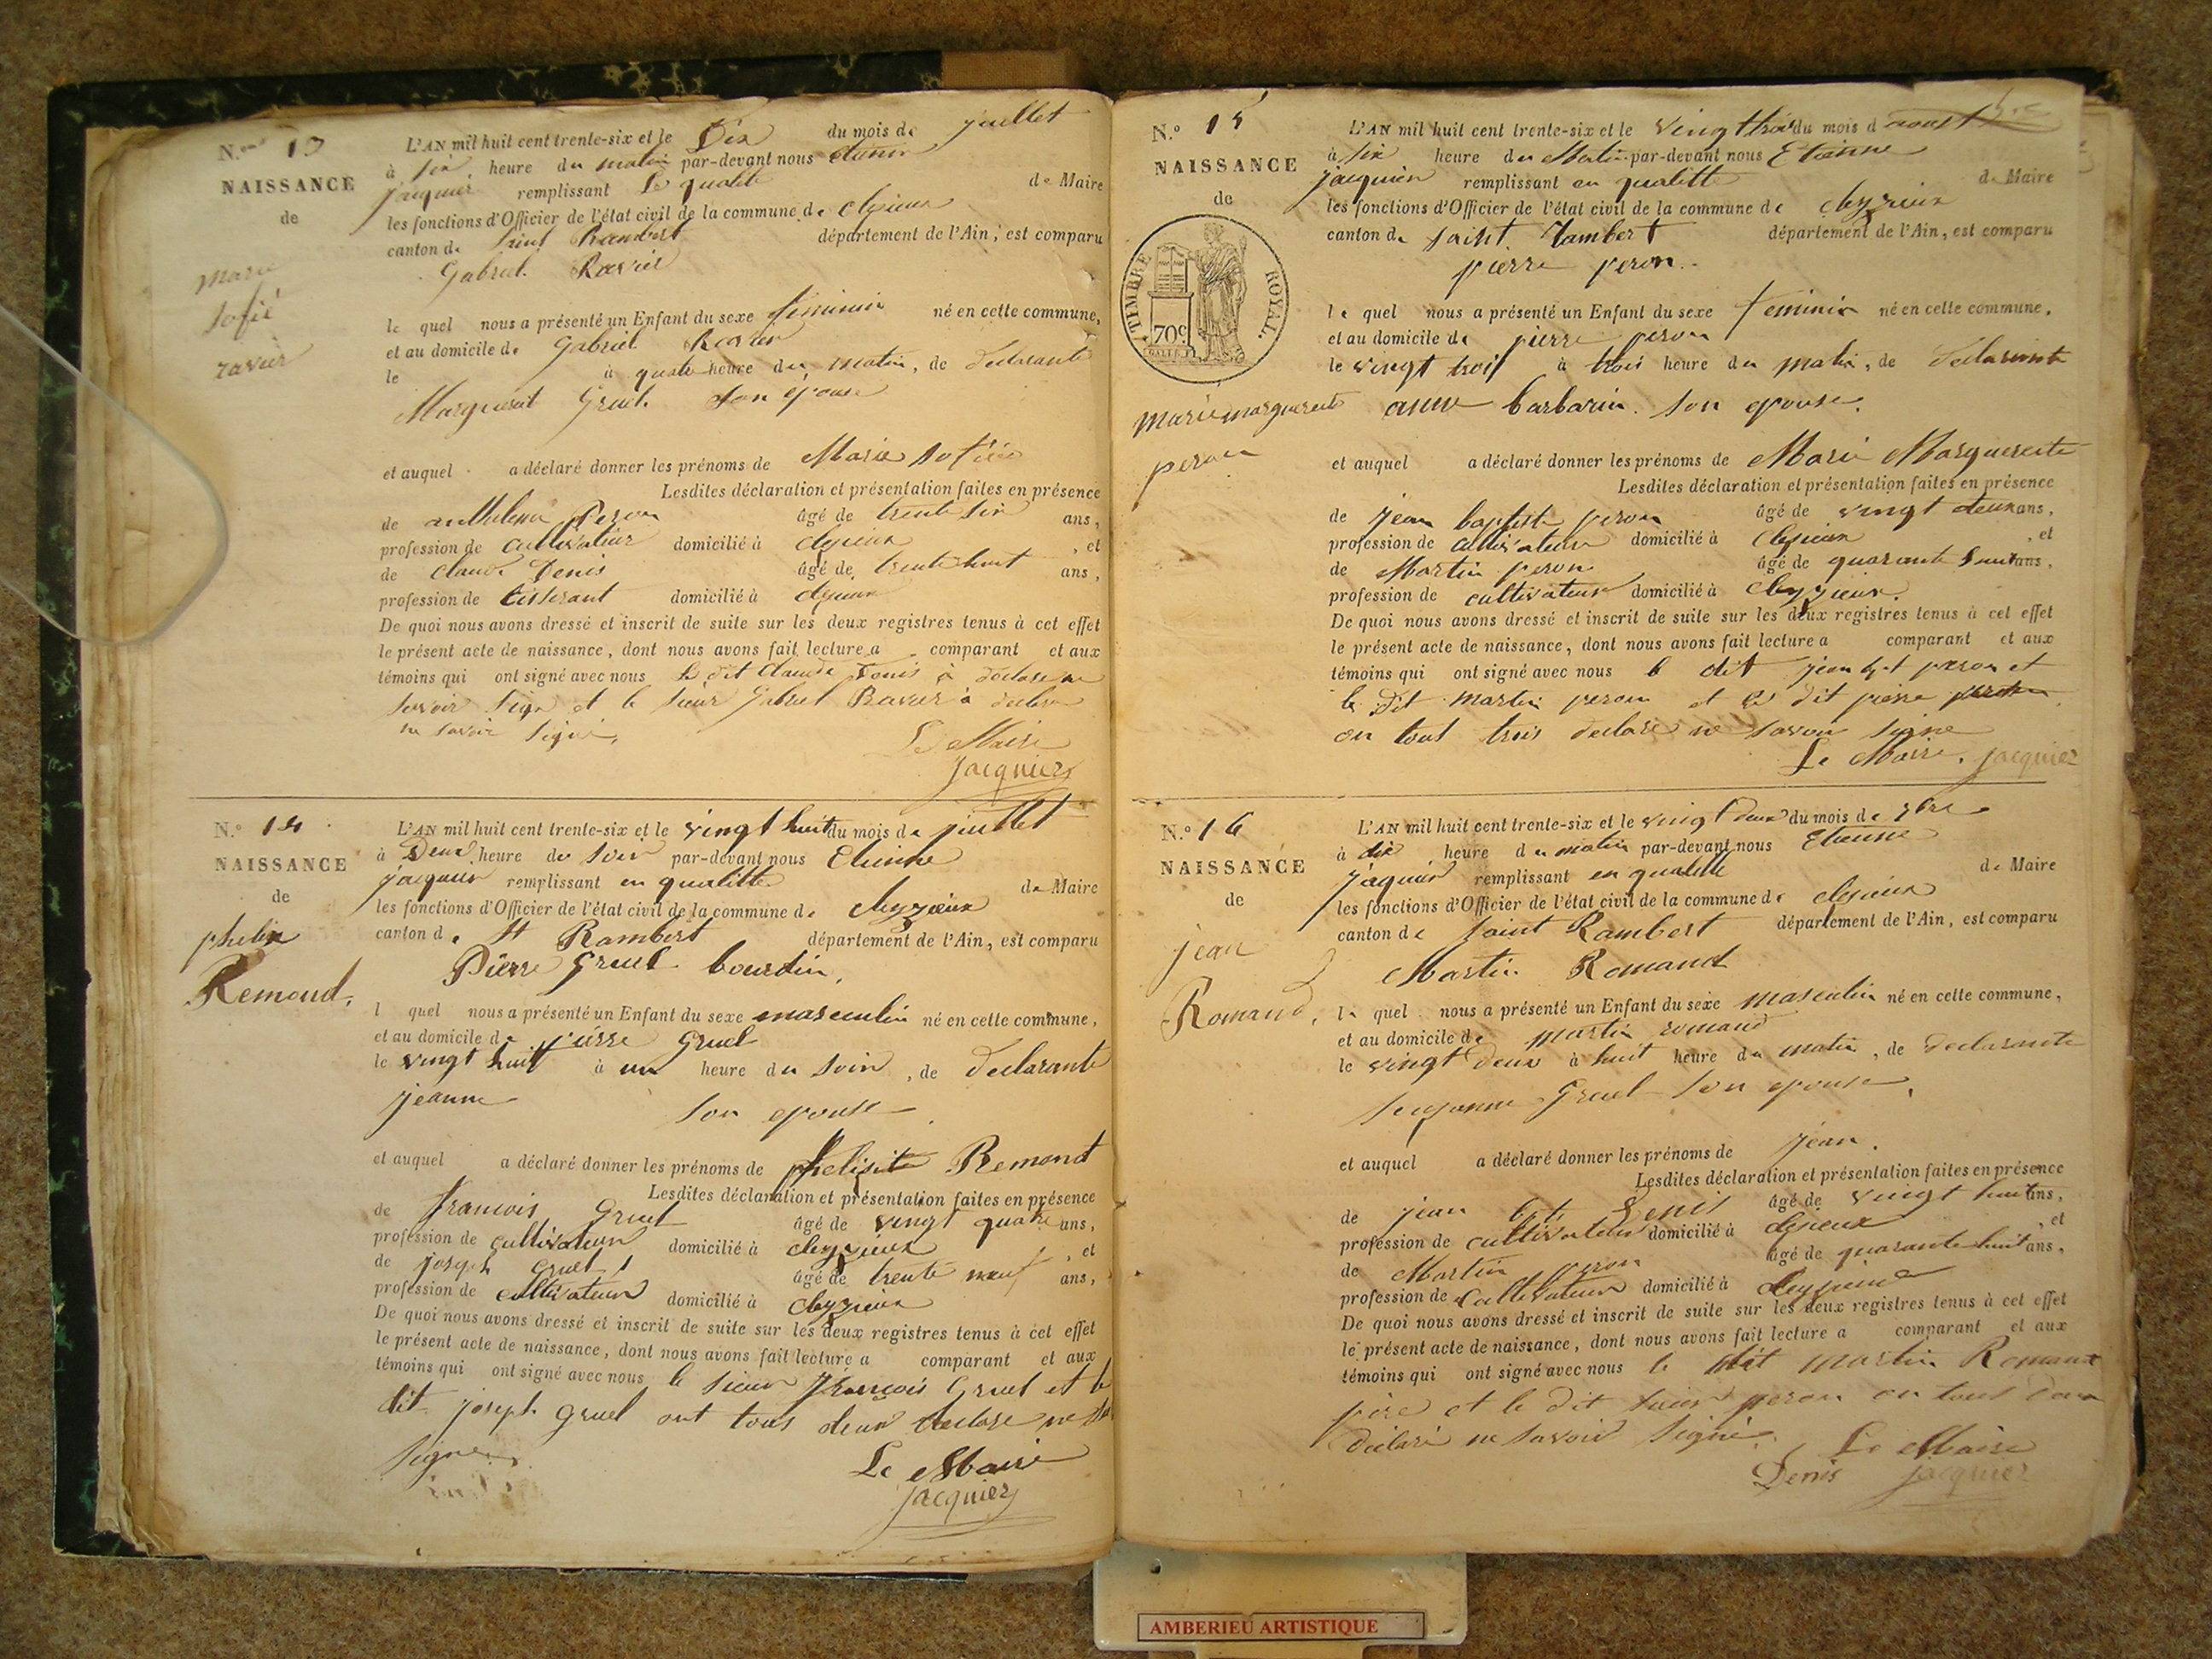 N.º 13
NAISSANCE
de
Marie
Sofié
ravier
L'AN mil huit cent trente-six et le Dix du mois de juillet
à six heure du matin par-devant nous etienne
jacquier remplissant de qualité de Maire
les fonctions d'Officier de l'état civil de la commune de cleyzieux
canton de Saint Rambert département de l'Ain, est comparu
Gabriel Ravier
le quel nous a présenté un Enfant du sexe féminin né en cette commune,
et au domicile de Gabriel Ravier
le à quatre heure du matin, de declarante
Marguerit Gruel son epouse
et auquel a déclaré donner les prénoms de Marie Sofiée
Lesdites déclaration et présentation faites en présence
de anthelme Peron âgé de trente six ans,
profession de cultivateur domicilié à cleyzieux , et
de claude Denis âgé de trente huit ans,
profession de tisserant domicilié à cleyzieux
De quoi nous avons dressé et inscrit de suite sur les deux registres tenus à cet effet
le présent acte de naissance, dont nous avons fait lecture a comparant et aux
témoins qui ont signé avec nous Le dit Claude Denis a declare ne
savoir signe et le sieur Gabriel Ravier a declare
ne savoir signé,
Le Maire
Jacquier
N.º 14
NAISSANCE
de
phelix
Remond,
L'AN mil huit cent trente-six et le vingt huit du mois de juillet
à Deux heure du soir par-devant nous Etienne
jacquier remplissant en qualitté de Maire
les fonctions d'Officier de l'état civil de la commune de cleyzieux
canton de St Rambert département de l'Ain, est comparu
Pierre Gruel bourdin,
l quel nous a présenté un Enfant du sexe masculin né en cette commune,
et au domicile de pierre Gruel
le vingt huit à un heure du soir, de declarante
jeanne son epouse.
et auquel a déclaré donner les prénoms de phelisite Remond
Lesdites déclaration et présentation faites en présence
de francois Gruel âgé de vingt quatre ans,
profession de cultivateur domicilié à cleyzieux , et
de joseph Gruel âgé de trente neuf ans,
profession de cultivateur domicilié à cleyzieux
De quoi nous avons dressé et inscrit de suite sur les deux registres tenus à cet effet
le présent acte de naissance, dont nous avons fait lecture a comparant et aux
témoins qui ont signé avec nous le sieur françois Gruel et le
dit joseph gruel ont tous deux declare ne
signer
Le Maire
Jacquier
N.º 15
NAISSANCE
de
TIMBRE ROYAL
70c
marie marguerite
peron
L'AN mil huit cent trente-six et le vingt trois du mois d aoust
à six heure du Matin par-devant nous Etienne
jacquier remplissant en qualitté de Maire
les fonctions d'Officier de l'état civil de la commune de cleyzieux
canton de saint Rambert département de l'Ain, est comparu
pierre peron.
le quel nous a présenté un Enfant du sexe feminin né en cette commune,
et au domicile de pierre peron
le vingt trois à trois heure du matin, de declarante
anne barbarin son epouse.
et auquel a déclaré donner les prénoms de Marie Marguereite
Lesdites déclaration et présentation faites en présence
de jean baptiste peron âgé de vingt deux ans,
profession de cultivateur domicilié à cleyzieux , et
de Martin peron âgé de quarante huit ans,
profession de cultivateur domicilié à cleyzieux.
De quoi nous avons dressé et inscrit de suite sur les deux registres tenus à cet effet
le présent acte de naissance, dont nous avons fait lecture a comparant et aux
témoins qui ont signé avec nous le dit jean bt peron et
le dit martin peron et le dit pierre peron
on tout trois declare ne savoir signe
Le Maire. jacquier
N.º 16
NAISSANCE
de
jean
Romand,
L'AN mil huit cent trente-six et le vingt deux du mois de 7bre
à dix heure du matin par-devant nous Etienne
jaquier remplissant en qualitté de Maire
les fonctions d'Officier de l'état civil de la commune de cleyzieux
canton de saint Rambert département de l'Ain, est comparu
Martin Romand
le quel nous a présenté un Enfant du sexe masculin né en cette commune,
et au domicile de martin romand
le vingt deux à huit heure du matin, de declarante
suzanne Gruel son epouse.
et auquel a déclaré donner les prénoms de jean.
Lesdites déclaration et présentation faites en présence
de jean bte Denis âgé de vingt huit ans,
profession de cultivateur domicilié à cleyzieux , et
de Martin peron âgé de quarante huit ans,
profession de cultivateur domicilié à cleyzieux
De quoi nous avons dressé et inscrit de suite sur les deux registres tenus à cet effet
le présent acte de naissance, dont nous avons fait lecture a comparant et aux
témoins qui ont signé avec nous le dit martin Romand
père et le dit sieur peron on tous deux
declaré ne savoir signé.
Le Maire
Denis jacquier
AMBERIEU ARTISTIQUE